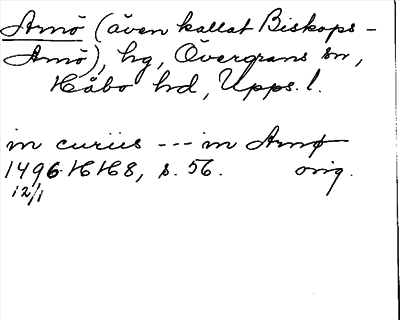 Arnö (även kallat Biskops-
Arnö), hg, Övergrans sn,
Håbo hd, Upps. l.
in curiis --- in Arnø
1496 HH8, s. 56. orig.
12/1